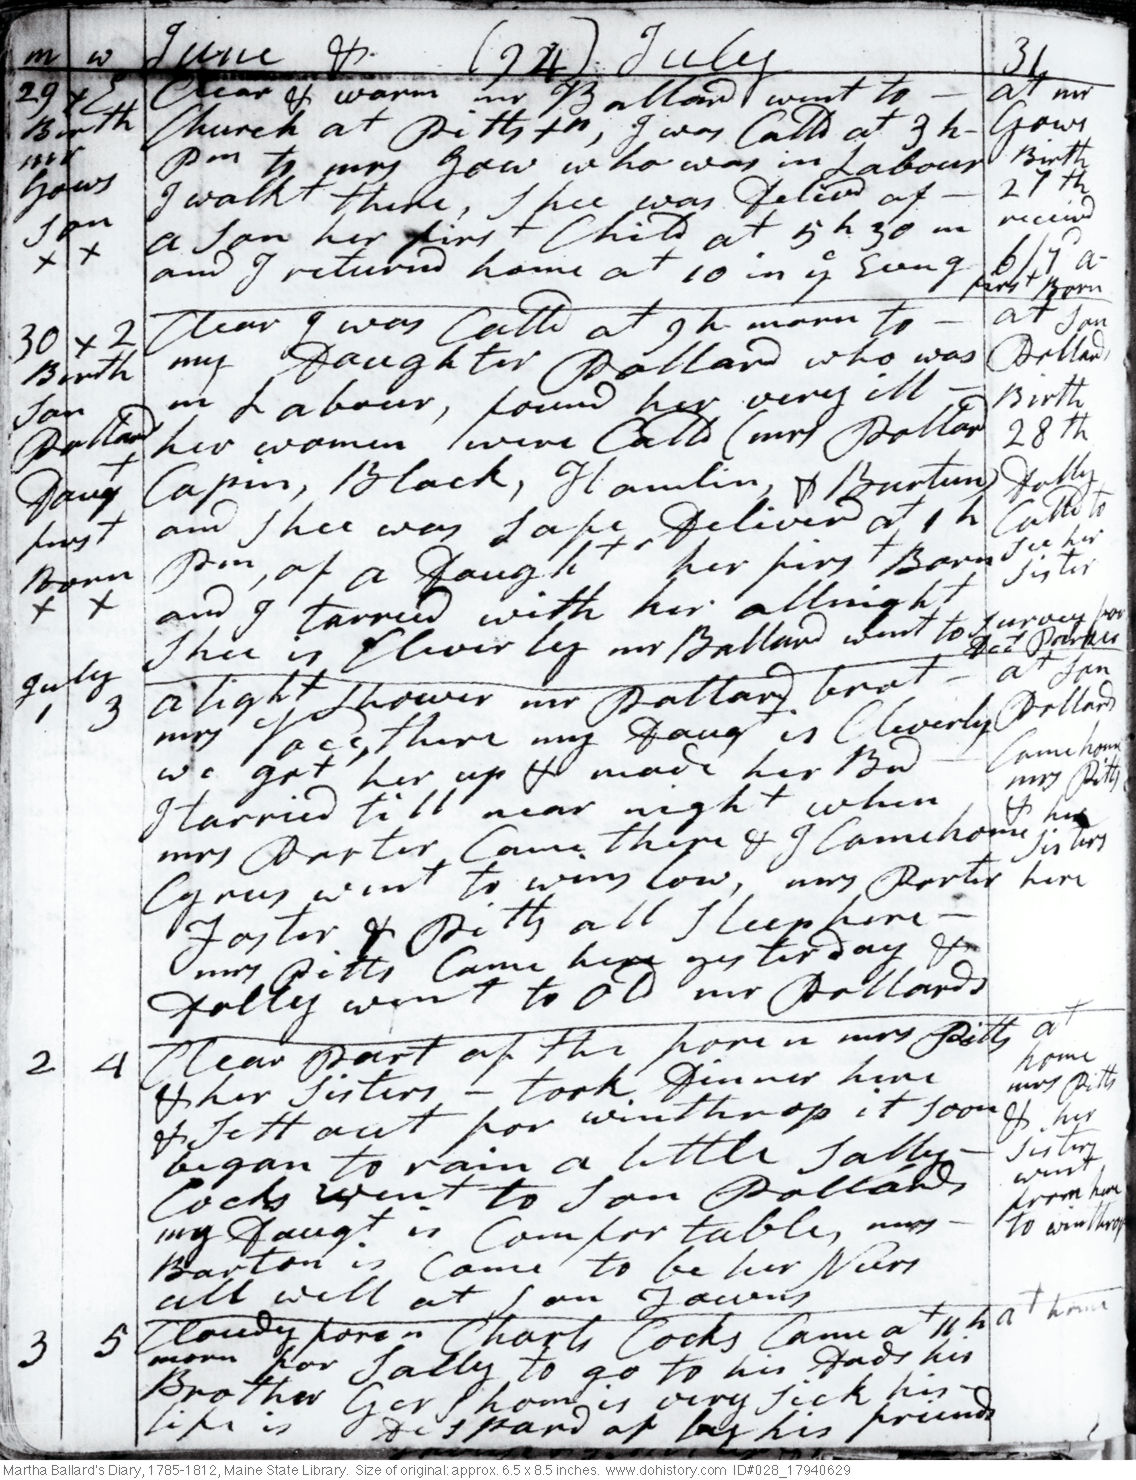 m w June & (94) July 31
29 x E Clear & warm mr Ballard went to – at mr
Birth Church at Pittstn, I was Calld at 3 h – Gows
mr Pm to mrs Gow who was in Labour Birth
Gows I walkt there, Shee was Delivd of – 27th
Son a Son her first Child at 5 h 30 m receivd
x x and I returnd home at 10 in ye Evng 6/ 1st a-
first Born
30 x 2 Clear I was Calld at 9 h morn to – at Son
Birth my Daughter Pollard who was Pollards
Son in Labour, found her very ill – Birth
Pollard her women were Calld (mrs Pollard 28th
Daugt Capin, Black, Hamlin, & Burtun) Dolly
first and Shee was Safe Deliverd at 1 h Calld to
Born Pm, of a Daught r her first Born See her
x x and I tarried with her allnight Sister
Shee is Cleverly mr Ballard went to Survey for
Parker
July a light Shower mr Pollard brot – at Son
1 3 mrs there my Daugt is Cleverly Pollard
we got her up & made her Bed – Came home
I tarried till near night when mrs Pitts
mrs Porter Came there & I Came home & her
Cyrus went to winslow, mrs Porter Sisters here
Foster & Pitts all Sleep here –
mrs Pitts Came here yesterday &
Dolly went to old mr Pollards
2 4 Clear part of the foren mrs Pitts at
& her Sisters – took Dinner here home
& Sett out for winthrop it Soon mrs Pitts
began to rain a little Sally – & her
Cocks went to Son Pollards Sisters
my Daugt is Comfortable, mrs – went
Barton is Come to be her Nurs from here
all well at Son Towns to winthrop
3 5 Cloudy foren Charls Cocks Came at 11 h at home
morn for Sally to go to his Dads his
Brother Gershom is very Sick his –
life is Despard of by his friends
Martha Ballard's Diary, 1785-1812, Maine State Library. Size of original: approx. 6.5 x 8.5 inches. www.dohistory.com ID#028_17940629